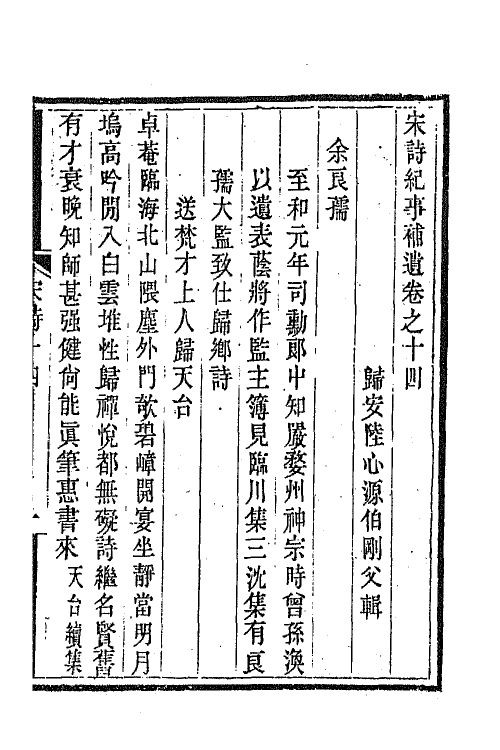 宋詩紀事補遺卷之十四
歸安陸心源伯剛父輯
余良孺
至和元年司勳郎中知嚴婺州神宗時曾孫渙
以遺表蔭將作監主簿見臨川集三沈集有良
孺大監致仕歸鄉詩
送梵才上人歸天台
卓菴臨海北山隈塵外門欹碧嶂開宴坐靜當明月
塢高吟閒入白雲堆性歸禪悅都無礙詩繼名賢舊
有才衰晚知師甚强健尙能眞筆惠書來 天台續集
宋詩十四
一